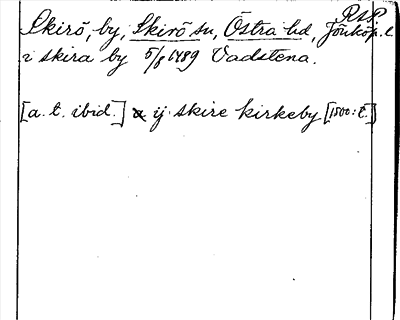 RSP
Skirö, by, Skirö sn, Östra hd, Jönköp. l.
i skira by 5/8 1489 Vadstena.
[a. t. ibid.] ij skire kirkeby [1500: t.]